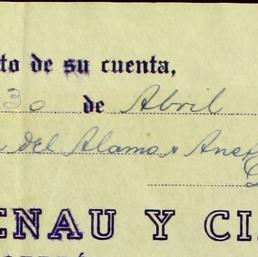 to de su cuenta,
30 de Abril
del Alamo
ENAU Y CI